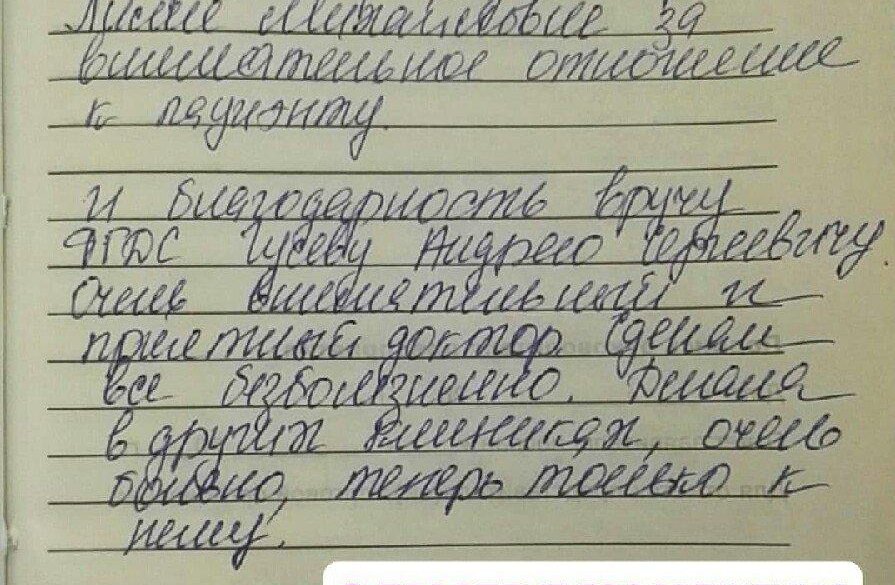 Михайловне за
внимательное отношение
к пациэнту.
И благодарность вручу
ФГДС Гусеву Андрею Сергеевичу.
Очень внимательный и
приятный доктор. Сделал
все безболезненно. Делала
в других клиниках, очень
больно, теперь только к
нему.